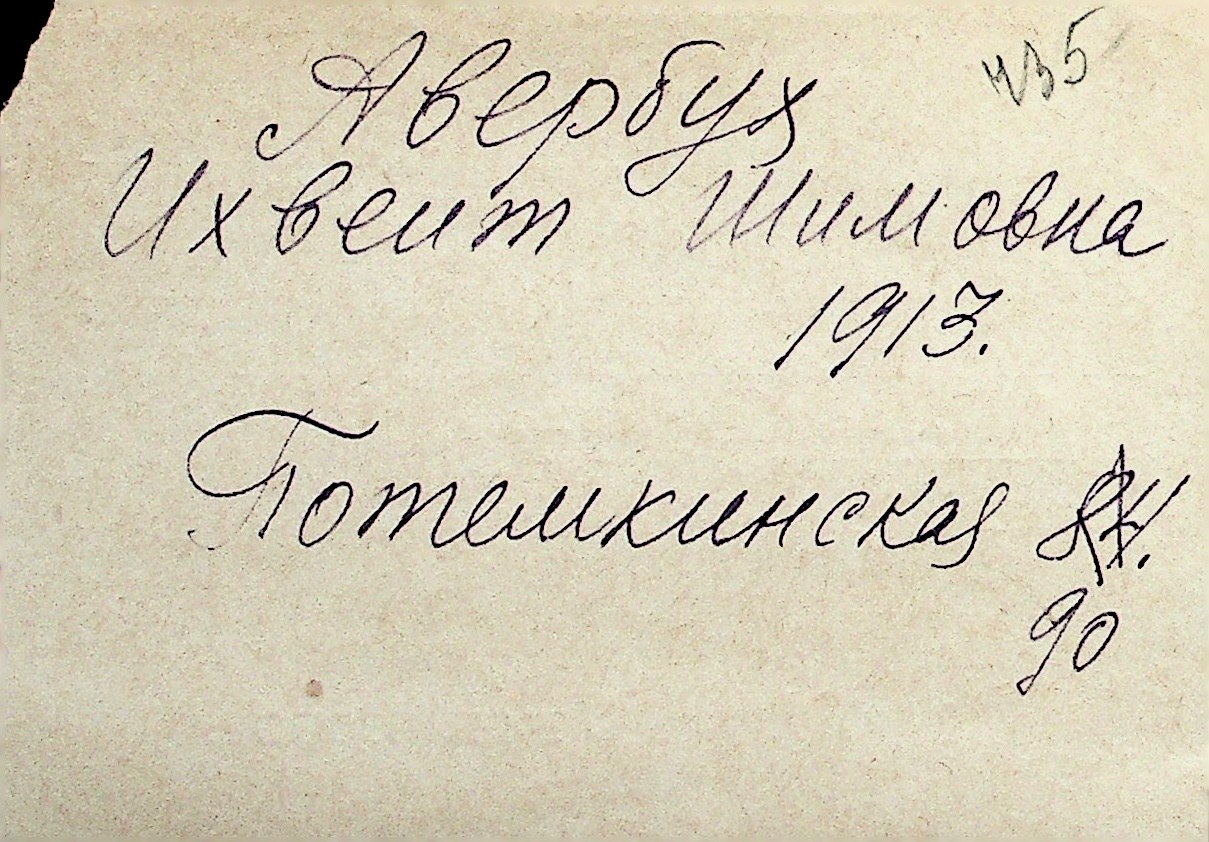 435
Авербух
Ихвеит Шимовна
1913.
Потемкинская
90